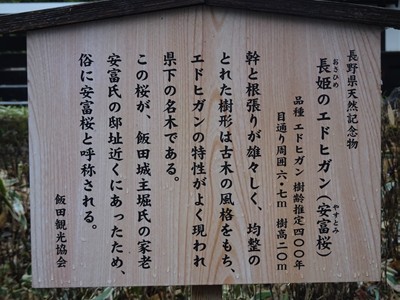 長野県天然記念物
長姫のエドヒガン(安富桜)
おさひめ
やすとみ
品種 エドヒガン 樹齢推定四〇〇年
目通り周囲 六・七m 樹高二〇m
幹と根張りが雄々しく、均整の
とれた樹形は古木の風格をもち、
エドヒガンの特性がよく現われ
県下の名木である。
この桜が、飯田城主堀氏の家老
安富氏の邸址近くにあったため、
俗に安富桜と呼称される。
飯田観光協会